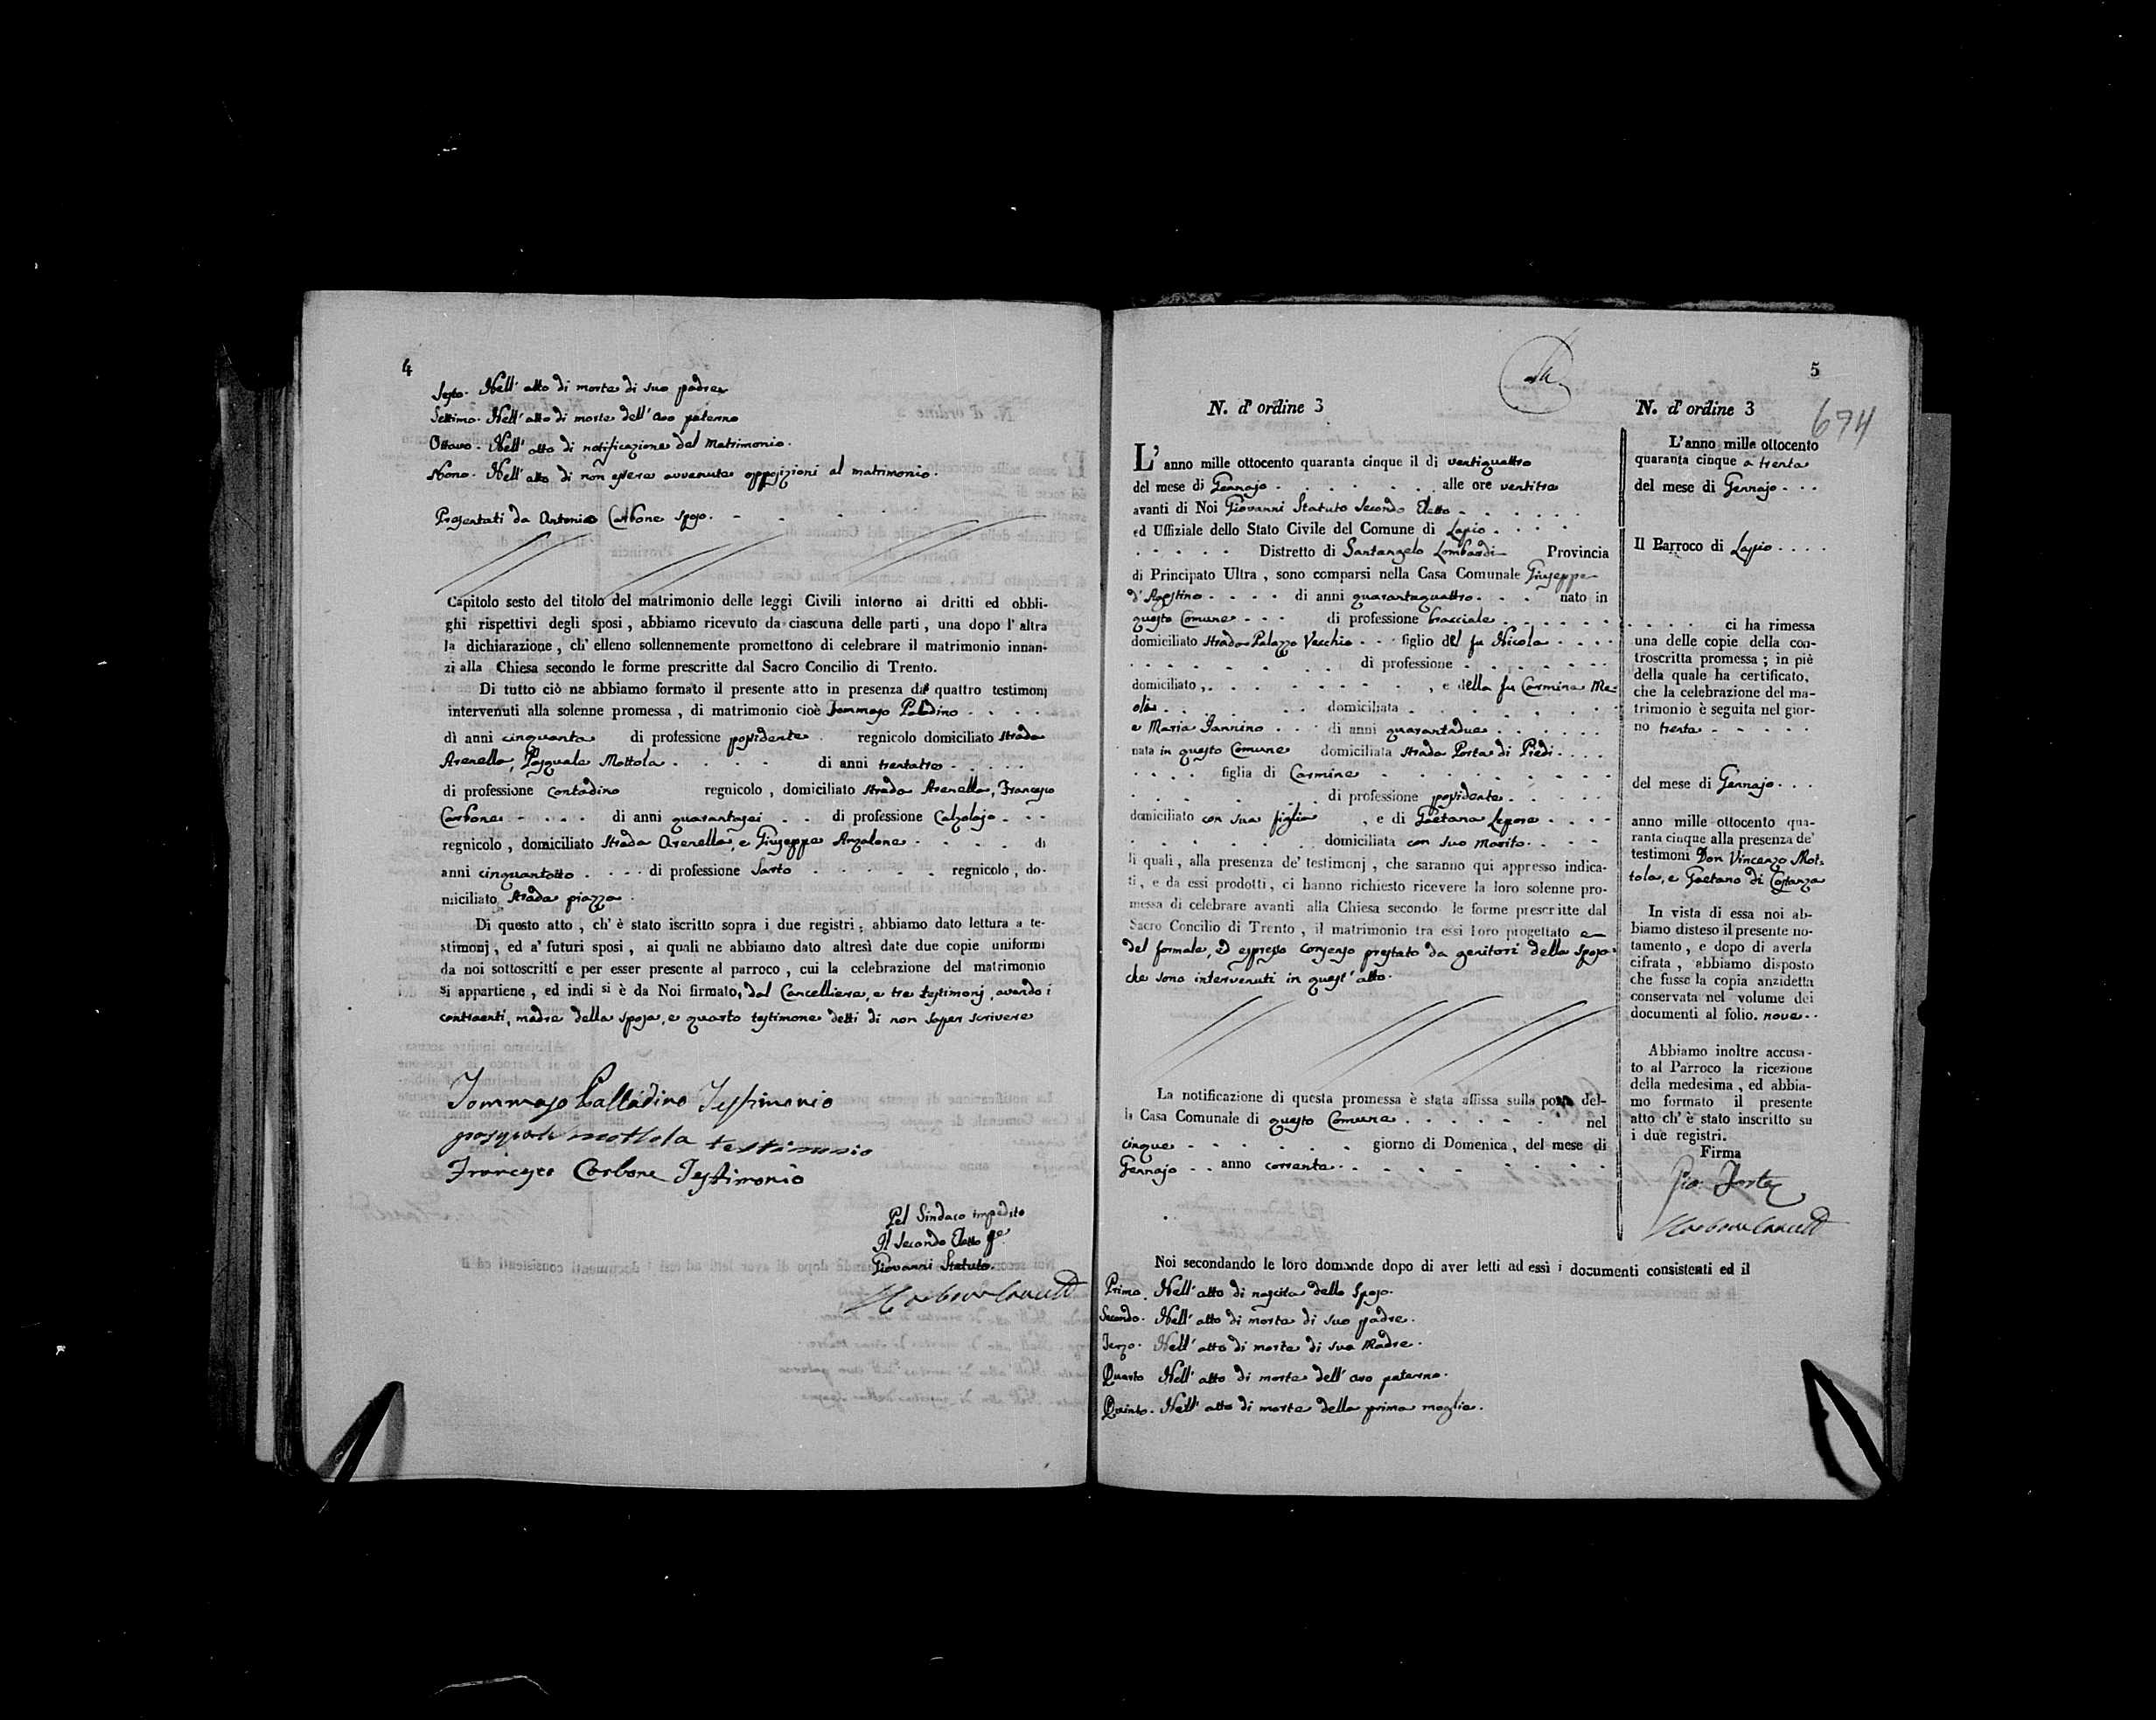 4
Sesto. Nell' atto di morte di suo padre
Settimo. Nell' atto di morte dell' avo paterno
Ottavo. Nell' atto di notificazione del Matrimonio.
Nono. Nell' atto di non essere avvenute opposizioni al matrimonio.
Presentati da Antonio Carbone sposo.
Capitolo sesto del titolo del matrimonio delle leggi Civili intorno ai dritti ed obbli-
ghi rispettivi degli sposi, abbiamo ricevuto da ciascuna delle parti, una dopo l' altra
la dichiarazione, ch' elleno sollennemente promettono di celebrare il matrimonio innan-
zi alla Chiesa secondo le forme prescritte dal Sacro Concilio di Trento.
Di tutto ciò ne abbiamo formato il presente atto in presenza di quattro testimonj
intervenuti alla solenne promessa, di matrimonio cioè Tommaso Palladino . . . .
di anni cinquanta di professione possidente regnicolo domiciliato strada
Arenella, Pasquale Mottola . . . . di anni trentatre . . . . .
di professione Contadino regnicolo, domiciliato strada Arenella, Francesco
Carbone . . . . di anni quarantasei . . di professione Calzolajo . . .
regnicolo, domiciliato strada Arenella, e Giuseppe Anzalone . . . . . di
anni cinquantotto . . . . di professione Sarto . . . . . regnicolo, do-
miciliato strada piazza.
Di questo atto, ch' è stato iscritto sopra i due registri, abbiamo dato lettura a te-
stimonj, ed a' futuri sposi, ai quali ne abbiamo dato altresì date due copie uniformi
da noi sottoscritti e per esser presente al parroco, cui la celebrazione del matrimonio
si appartiene, ed indi si è da Noi firmato, dal Cancelliere, e tre testimonj, avendo i
contraenti, madre della sposa, e quarto testimone detti di non saper scrivere
Tommaso Palladino Testimonio
pasquale mottola testimonio
Francesco Carbone Testimonio
Pel Sindaco impedito
Il Secondo Eletto
Giovanni Statuto
5
674
N. d' ordine 3
L' anno mille ottocento quaranta cinque il di ventiquattro
del mese di Gennajo . . . . . . . alle ore ventitre
avanti di Noi Giovanni Statuto Secondo Eletto . . . . . .
ed Uffiziale dello Stato Civile del Comune di Lapio . . . .
. . . . . Distretto di Santangelo Lombardi Provincia
di Principato Ultra, sono comparsi nella Casa Comunale Giuseppe
d' Agostino . . . . di anni quarantaquattro . . . nato in
questo Comune . . . di professione bracciale . . . . . .
domiciliato strada Palazzo Vecchio . . . figlio del fu Nicola . . . .
. . . . . . . . di professione . . . . . . .
domiciliato, . . . . . . . . , e della fu Carmina Me-
ola . . . . . . . domiciliata . . . . . . . .
e Maria Iannino . . . di anni quarantadue . . . . . .
nata in questo Comune domiciliata strada Porta di Piedi . . . .
. . . . figlia di Carmine . . . . . . . . .
. . . . . . . di professione possidente . . . . .
domiciliato con sua figlia , e di Gaetana Lepore . . . .
. . . . . . . domiciliata con suo marito . . . .
li quali, alla presenza de' testimonj, che saranno qui appresso indica-
ti, e da essi prodotti, ci hanno richiesto ricevere la loro solenne pro-
messa di celebrare avanti alla Chiesa secondo le forme prescritte dal
Sacro Concilio di Trento, il matrimonio tra essi loro progettato e
del formale, ed espresso consenso prestato da genitori della sposa
che sono intervenuti in quest' atto.
La notificazione di questa promessa è stata affissa sulla porta del-
la Casa Comunale di questo Comune . . . . . . . nel
cinque . . . . . . giorno di Domenica, del mese di
Gennajo . . anno corrente . . . . . . . . .
Noi secondando le loro domande dopo di aver letti ad essi i documenti consistenti ed il
Primo. Nell' atto di nascita dello Sposo.
Secondo. Nell' atto di morte di suo padre.
Terzo. Nell' atto di morte di sua Madre.
Quarto Nell' atto di morte dell' avo paterno.
Quinto. Nell' atto di morte della prima moglie.
N. d' ordine 3
L'anno mille ottocento
quaranta cinque a trenta
del mese di Gennajo . . .
Il Parroco di Lapio . . . .
. . . . . ci ha rimessa
una delle copie della con-
troscritta promessa; in piè
della quale ha certificato,
che la celebrazione del ma-
trimonio è seguita nel gior-
no trenta . . . . .
del mese di Gennajo . . .
anno mille ottocento qua-
ranta cinque alla presenza de'
testimoni Don Vincenzo Mot-
tola, e Gaetano di Costanza
In vista di essa noi ab-
biamo disteso il presente no-
tamento, e dopo di averla
cifrata, abbiamo disposto
che fusse la copia anzidetta
conservata nel volume dei
documenti al folio. nove . .
Abbiamo inoltre accusa-
to al Parroco la ricezione
della medesima, ed abbia-
mo formato il presente
atto ch' è stato inscritto su
i due registri.
Firma